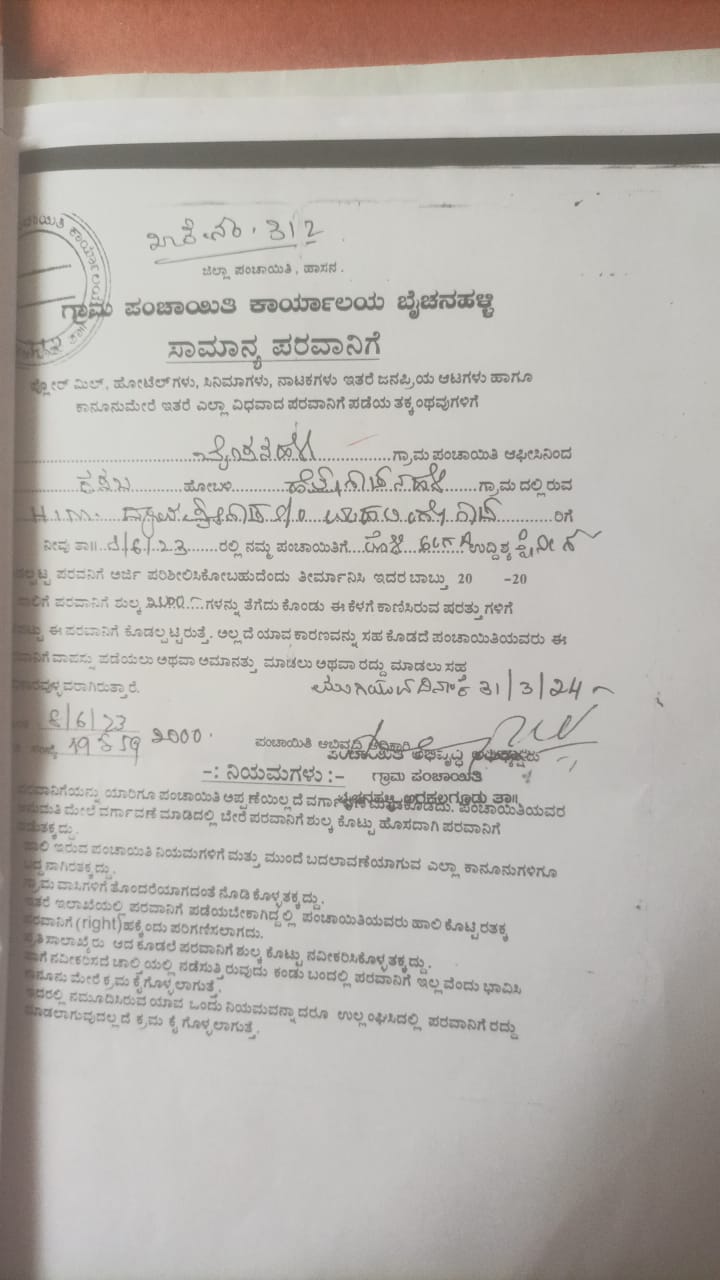 ಖಾತೆ.ನಂ. 312
ಜಿಲ್ಲಾ ಪಂಚಾಯಿತಿ, ಹಾಸನ.
ಗ್ರಾಮ ಪಂಚಾಯಿತಿ ಕಾರ್ಯಾಲಯ ಬೈಚನಹಳ್ಳಿ
ಸಾಮಾನ್ಯ ಪರವಾನಿಗೆ
ಪ್ಲೋರ್ ಮಿಲ್, ಹೋಟೆಲ್‌ಗಳು, ಸಿನಿಮಾಗಳು, ನಾಟಕಗಳು ಇತರೆ ಜನಪ್ರಿಯ ಆಟಗಳು ಹಾಗೂ
ಕಾನೂನುಮೇರೆ ಇತರೆ ಎಲ್ಲಾ ವಿಧವಾದ ಪರವಾನಿಗೆ ಪಡೆಯ ತಕ್ಕಂಥವುಗಳಿಗೆ
ಗ್ರಾಮ ಪಂಚಾಯಿತಿ ಆಫೀಸಿನಿಂದ
ಕಸಬ ಹೋಬಳಿ ಗ್ರಾಮದಲ್ಲಿರುವ
ರಿಗೆ
ನೀವು ತಾ॥ 8/6/23 ರಲ್ಲಿ ನಮ್ಮ ಪಂಚಾಯಿತಿಗೆ ಉದ್ದಿಶ್ಯ
ಪರವನಿಗೆ ಅರ್ಜಿ ಪರಿಶೀಲಿಸಿಕೋಬಹುದೆಂದು ತೀರ್ಮಾನಿಸಿ ಇದರ ಬಾಬ್ತು 20 -20
ಪರವಾನಿಗೆ ಶುಲ್ಕ 2000 ಗಳನ್ನು ತೆಗೆದು ಕೊಂಡು ಈ ಕೆಳಗೆ ಕಾಣಿಸಿರುವ ಷರತ್ತುಗಳಿಗೆ
ಈ ಪರವಾನಿಗೆ ಕೊಡಲ್ಪಟ್ಟಿರುತ್ತೆ. ಅಲ್ಲದೆ ಯಾವ ಕಾರಣವನ್ನು ಸಹ ಕೊಡದೆ ಪಂಚಾಯಿತಿಯವರು ಈ
ವಾಪಸ್ಸು ಪಡೆಯಲು ಅಥವಾ ಅಮಾನತ್ತು ಮಾಡಲು ಅಥವಾ ರದ್ದು ಮಾಡಲು ಸಹ
ಮುಗಿಯುವ ದಿನಾಂಕ 31/3/24
8/6/23
2000.
ಪಂಚಾಯಿತಿ ಅಭಿವೃದ್ಧಿ ಅಧಿಕಾರಿ
-: ನಿಯಮಗಳು :- ಗ್ರಾಮ ಪಂಚಾಯಿತಿ
ಬೈಚನಹಳ್ಳಿ, ಅರಕಲಗೂಡು ತಾ॥
ಪರವಾನಿಗೆಯನ್ನು ಯಾರಿಗೂ ಪಂಚಾಯಿತಿ ಅಪ್ಪಣೆಯಿಲ್ಲದೆ ಪಂಚಾಯಿತಿಯವರ
ಅನುಮತಿ ಮೇಲೆ ವರ್ಗಾವಣೆ ಮಾಡಿದಲ್ಲಿ ಬೇರೆ ಪರವಾನಿಗೆ ಶುಲ್ಕ ಕೊಟ್ಟು ಹೊಸದಾಗಿ ಪರವಾನಿಗೆ
ಇರುವ ಪಂಚಾಯಿತಿ ನಿಯಮಗಳಿಗೆ ಮತ್ತು ಮುಂದೆ ಬದಲಾವಣೆಯಾಗುವ ಎಲ್ಲಾ ಕಾನೂನುಗಳಿಗೂ
ಬದ್ಧನಾಗಿರತಕ್ಕದ್ದು.
ಗ್ರಾಮ ವಾಸಿಗಳಿಗೆ ತೊಂದರೆಯಾಗದಂತೆ ನೊಡಿ ಕೊಳ್ಳತಕ್ಕದ್ದು.
ಇತರೆ ಇಲಾಖೆಯಲ್ಲಿ ಪರವಾನಿಗೆ ಪಡೆಯಬೇಕಾಗಿದ್ದಲ್ಲಿ ಪಂಚಾಯಿತಿಯವರು ಹಾಲಿ ಕೊಟ್ಟಿರತಕ್ಕ
ಪರವಾನಿಗೆ (right) ಹಕ್ಕೆಂದು ಪರಿಗಣಿಸಲಾಗದು.
ಆದ ಕೂಡಲೆ ಪರವಾನಿಗೆ ಶುಲ್ಕ ಕೊಟ್ಟು ನವೀಕರಿಸಿಕೊಳ್ಳತಕ್ಕದ್ದು.
ಹಾಗೆ ನವೀಕರಿಸದೆ ಚಾಲ್ತಿಯಲ್ಲಿ ನಡೆಸುತ್ತಿರುವುದು ಕಂಡು ಬಂದಲ್ಲಿ ಪರವಾನಿಗೆ ಇಲ್ಲವೆಂದು ಭಾವಿಸಿ
ಕಾನೂನು ಮೇರೆ ಕ್ರಮ ಕೈಗೊಳ್ಳಲಾಗುತ್ತೆ.
ಇದರಲ್ಲಿ ನಮೂದಿಸಿರುವ ಯಾವ ಒಂದು ನಿಯಮವನ್ನಾದರೂ ಉಲ್ಲಂಘಿಸಿದಲ್ಲಿ ಪರವಾನಿಗೆ ರದ್ದು
ಮಾಡಲಾಗುವುದಲ್ಲದೆ ಕ್ರಮ ಕೈಗೊಳ್ಳಲಾಗುತ್ತೆ.